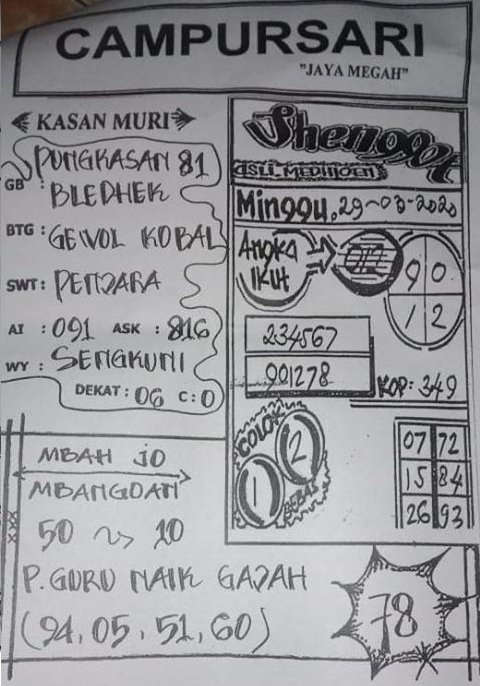 CAMPURSARI
"JAYA MEGAH"
KASAN MURI
PUNGKASAN 81
GB : BLEDHEK
BTG : GEWOL KOBAL
SWT : PENJARA
AI : 091 ASK : 816
WY : SENGKUNI
DEKAT : 06 C : 0
Shenggot
ASLI MEDHIOEN
Minggu, 29-03-2020
ANGKA IKUT
012
9 0
1 2
234567
901278
KOP : 349
COLOK
1 2
BEBAS
07 72
15 84
26 93
MBAH JO
MBANGDAN
50 10
P. GURU NAIK GAJAH
(94, 05, 51, 60)
78